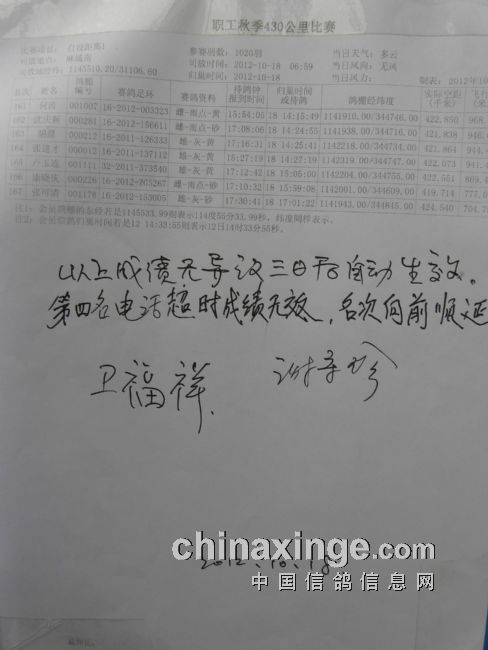 职工秋季430公里比赛
比赛项目: 自设距离1 参赛羽数: 1020羽 当日天气: 多云
司放地点: 麻城南 司放时间: 2012-10-18 06:59 当日风向: 无风
司放地经纬: 1145510.20/31106.60 归巢时间: 2012-10-18 当日风力: 制表: 2012年10
名次 姓名 鸽棚编号 赛鸽足环 赛鸽资料 待鸽钟报到时间 归巢时间或待鸽 鸽棚经纬度 实际空距(千米) 飞行
161 何茜 001007 16-2012-005323 雄-雨点-黄 15:54:05 18 14:15:49 1141910.00/344746.00 422.850 968.
162 武庆新 000281 16-2012-156611 雄-雨点-砂 17:08:06 18 14:24:55 1141938.00/344718.00
163 000212 16-2011-126333 雄-灰-黄 17:16:31 18 14:25:41 1142218.00/344734.00
164 张建才 000012 16-2011-137112 雄-灰-黄 15:27:19 18 14:27:19 1142219.00/344717.00
165 卢玉连 001111 32-2011-373540 雄-灰-黄 17:12:42 18 15:05:00 1142132.00/344755.00
166 康晓庆 000226 16-2012-205267 雌-雨点-砂 17:10:32 18 15:59:08 1142001.00/344609.00 419.714
167 张可清 001178 16-2012-153005 雄-灰-砂 17:30:41 18 17:01:22 1141943.00/344845.00 424.540
注1: 会员鸽棚的东经若是1145533.99则表示114度55分33.99秒,纬度同样表示。
注2: 会员信鸽归巢时间若是12 14:33:55则表示12日14时33分55秒。
以上成绩无异议三日后自动生效。
第四名电话超时成绩无效,名次向前顺延
卫福祥
chinaxinge.com
2012.10.18
中国信鸽信息网